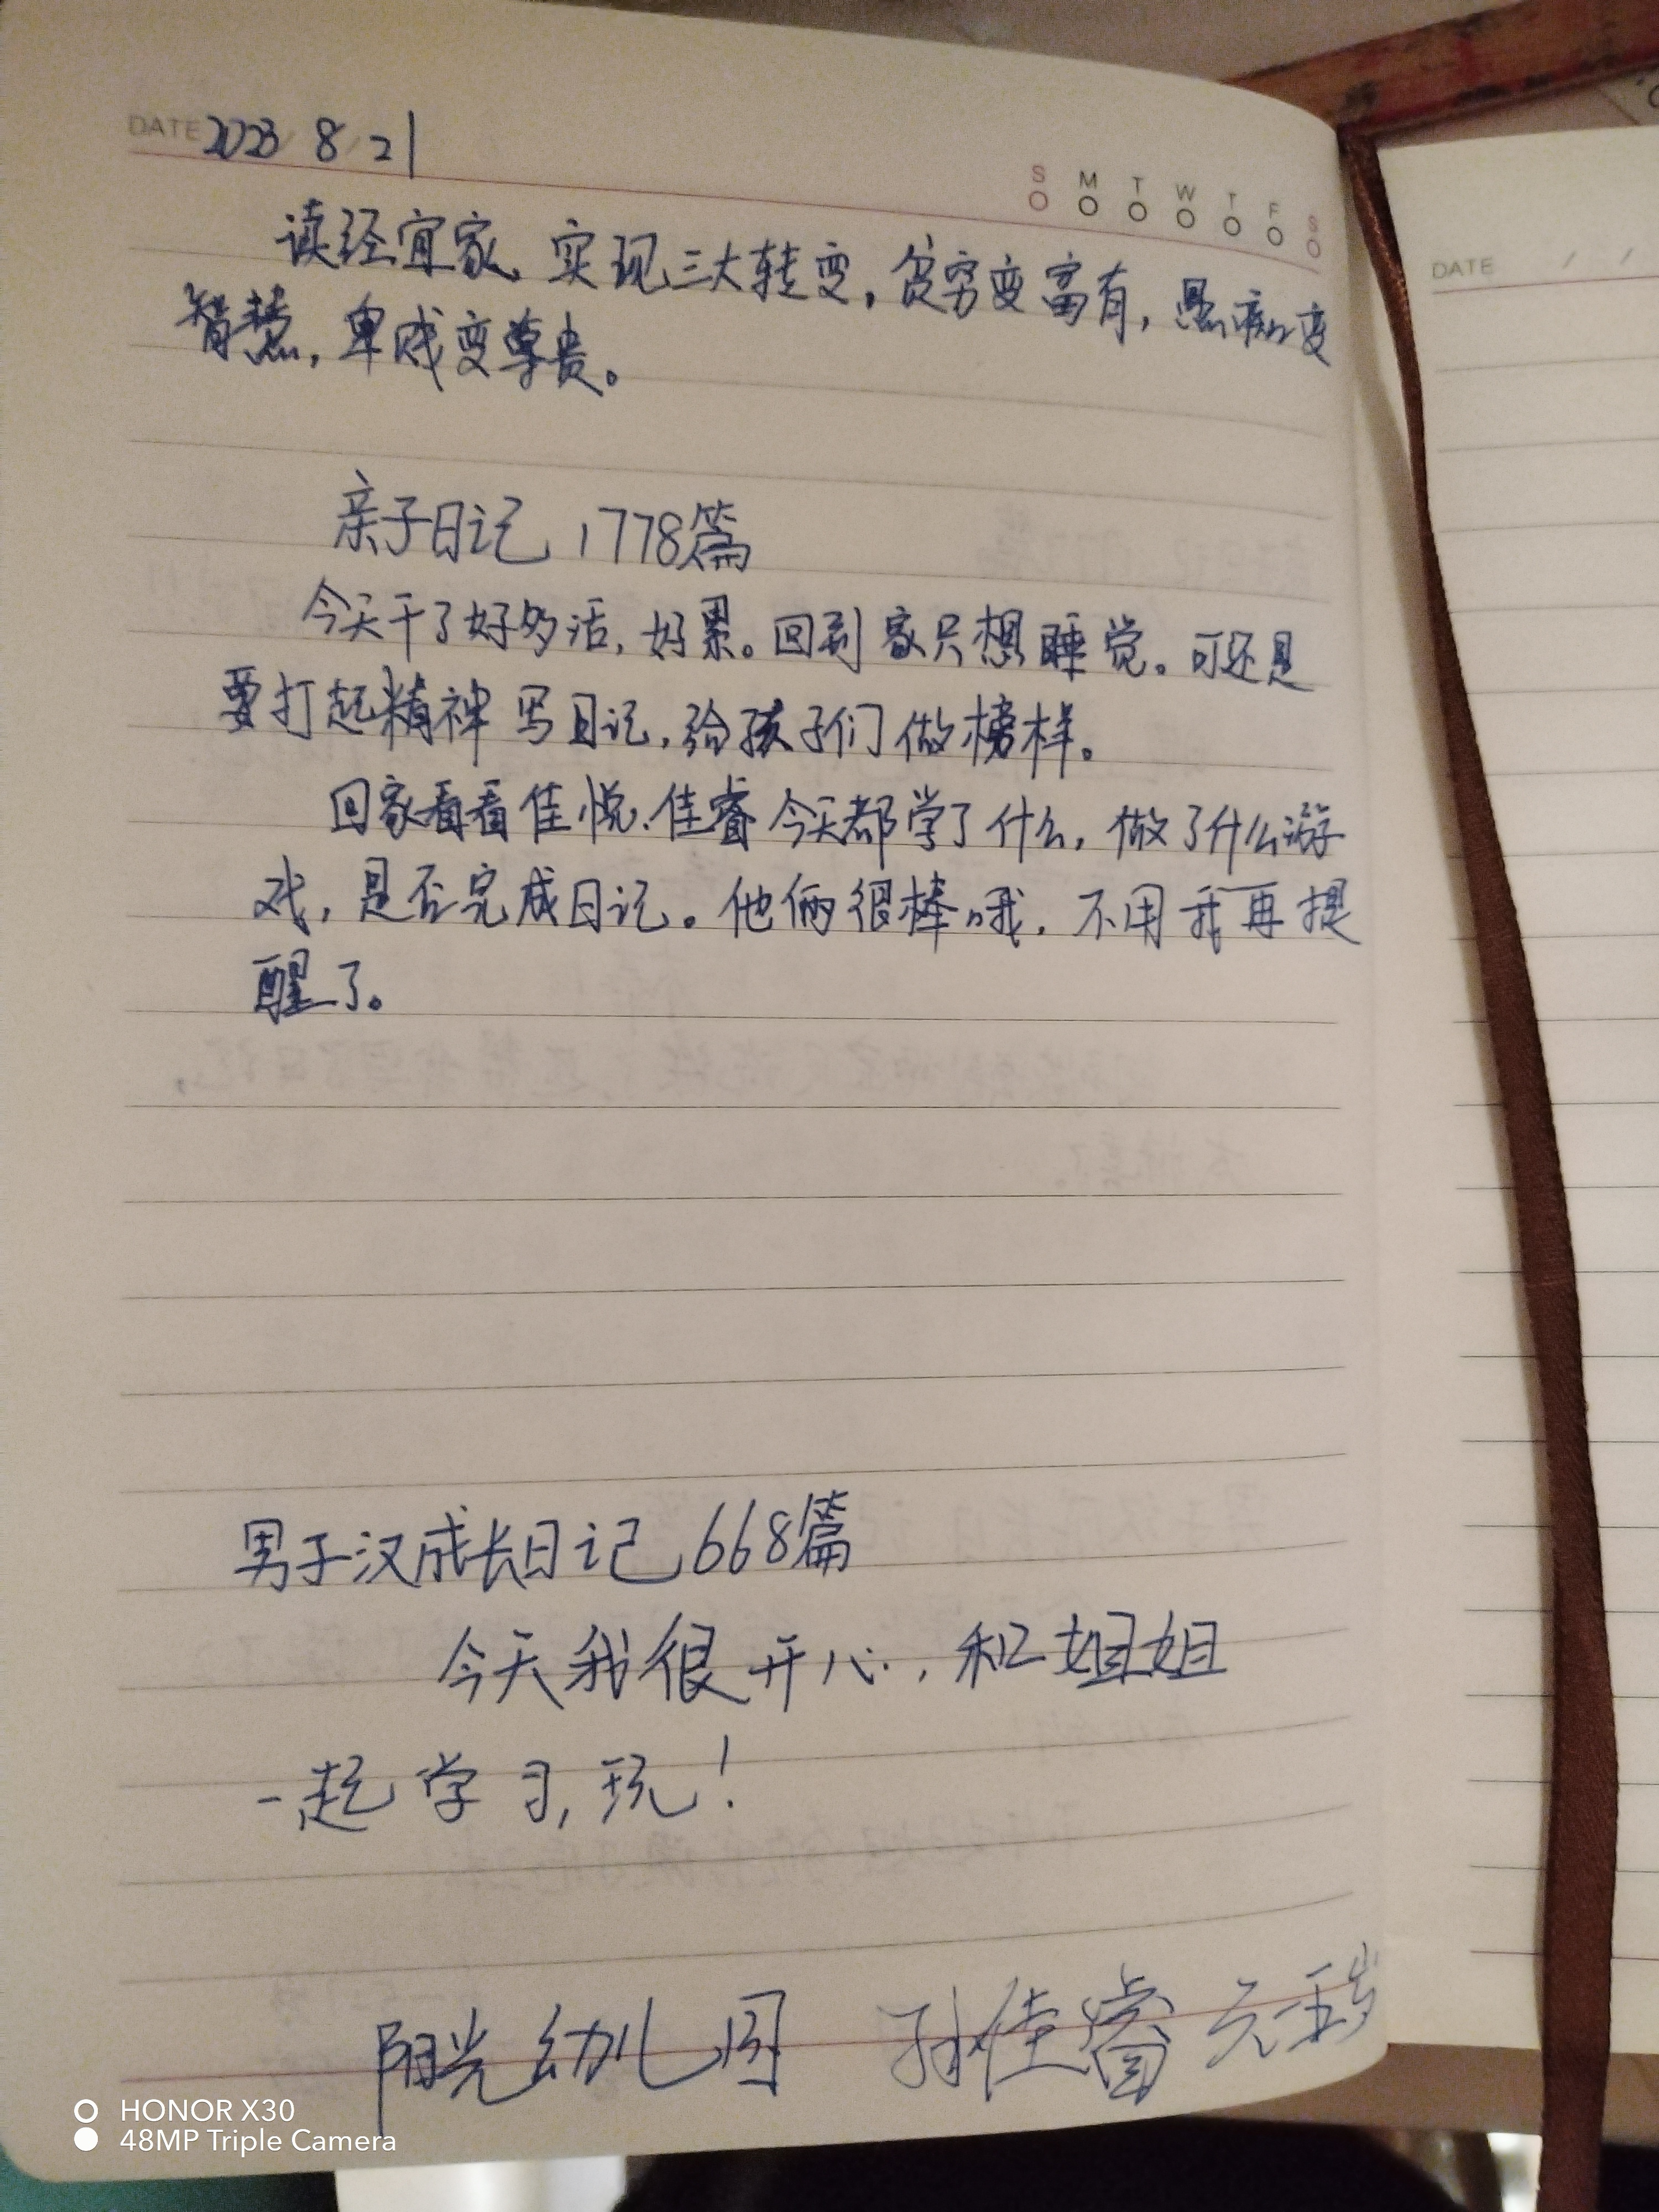 DATE 2023 8 21
S M T W T F S
读经宜家、实现三大转变，贫穷变富有，愚痴变
智慧，卑贱变尊贵。
亲子日记 1778篇
今天干了好多活，好累。回到家只想睡觉。可还是
要打起精神写日记，给孩子们做榜样。
回家看看佳悦、佳睿今天都学了什么，做了什么游
戏，是否完成日记。他俩很棒哦，不用我再提
醒了。
男子汉成长日记 668篇
今天我很开心，和姐姐
一起学习，玩！
阳光幼儿园 孙佳睿 六
DATE / /
HONOR X30
48MP Triple Camera